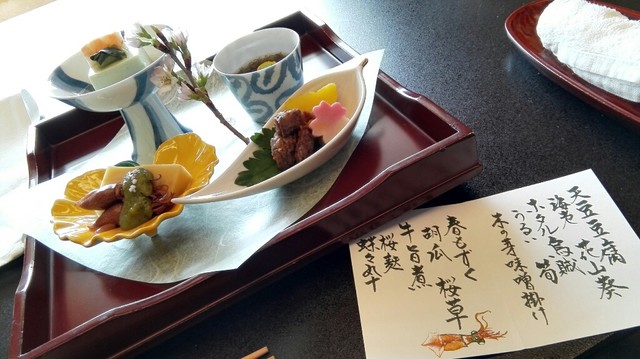 天豆豆腐
海老 花山葵
ホタル烏賊 筍
うるい
木の芽味噌掛け
春もずく 桜草
胡瓜
牛旨煮
桜麩
蝶々丸十